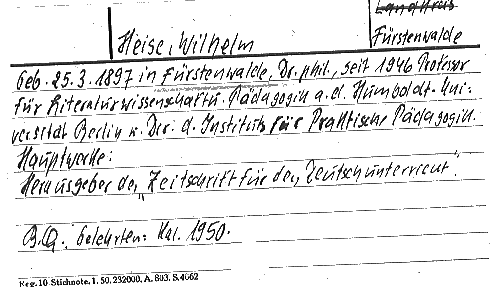 Landkreis
Heise, Wilhelm
Fürstenwalde
geb. 25.3.1897 in Fürstenwalde, Dr. phil., seit 1946 Professor
für Literaturwissenschaft u. Pädagogik a.d. Humboldt-Uni-
versität Berlin u. Dir. d. Instituts für Praktische Pädagogik.
Hauptwerke:
Herausgeber der "Zeitschrift für den Deutschunterricht".
B.Q. Gelehrten: Kal. 1950.
Reg. 10 Stichnote. 1. 50. 232000. A. 803. S. 4662